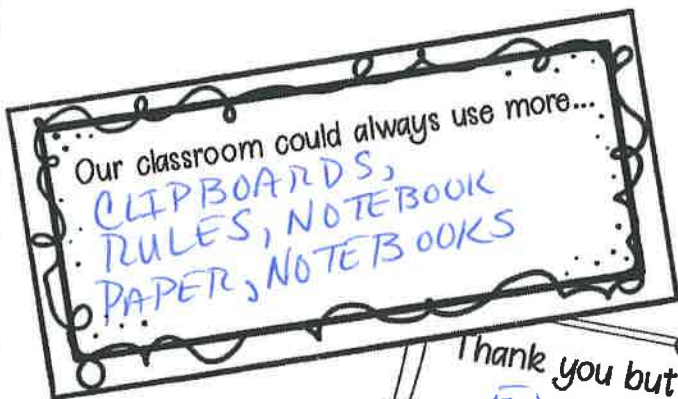 Our classroom could always use more...
CLIPBOARDS,
RULES, NOTEBOOK
PAPER, NOTEBOOKS
Thank you but